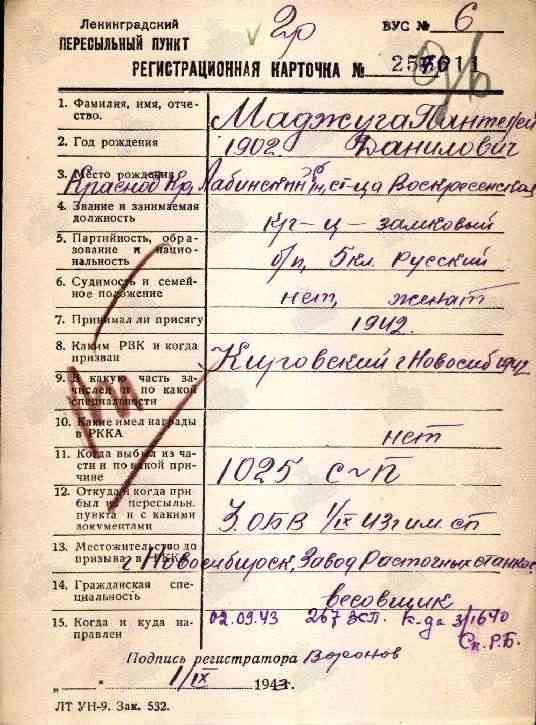 Ленинградский
ПЕРЕСЫЛЬНЫЙ ПУНКТ
2р
ВУС № 6
РЕГИСТРАЦИОННАЯ КАРТОЧКА №
1. Фамилия, имя, отчество. Маджуга Пантелей
2. Год рождения 1902. Данилович
3. Место рождения Краснод Кр, Лабинский рн, ст-ца Воскресенская
4. Звание и занимаемая должность кр-ц - замковый
5. Партийность, образование и национальность б/п, 5 кл. Русский
6. Судимость и семейное положение нет, женат
7. Принимал ли присягу 1942.
8. Каким РВК и когда призван Кировский г Новосиб 1942
9. В какую часть зачислен и по какой специальности
10. Какие имел награды в РККА нет
11. Когда выбыл из части и по какой причине 1025 с-п
12. Откуда и когда прибыл в пересыльн. пункта и с какими документами З.ОБВ 1/IX
13. Местожительство до призыва в г. Новосибирск, Завод Расточных станков
14. Гражданская специальность весовщик
15. Когда и куда направлен 02.09.43 267 зсп. к-да 3/1640
Сп. Р.Б.
Подпись регистратора Воронов
„ “ 1/IX 1943.
ЛТ УН-9. Зак. 532.